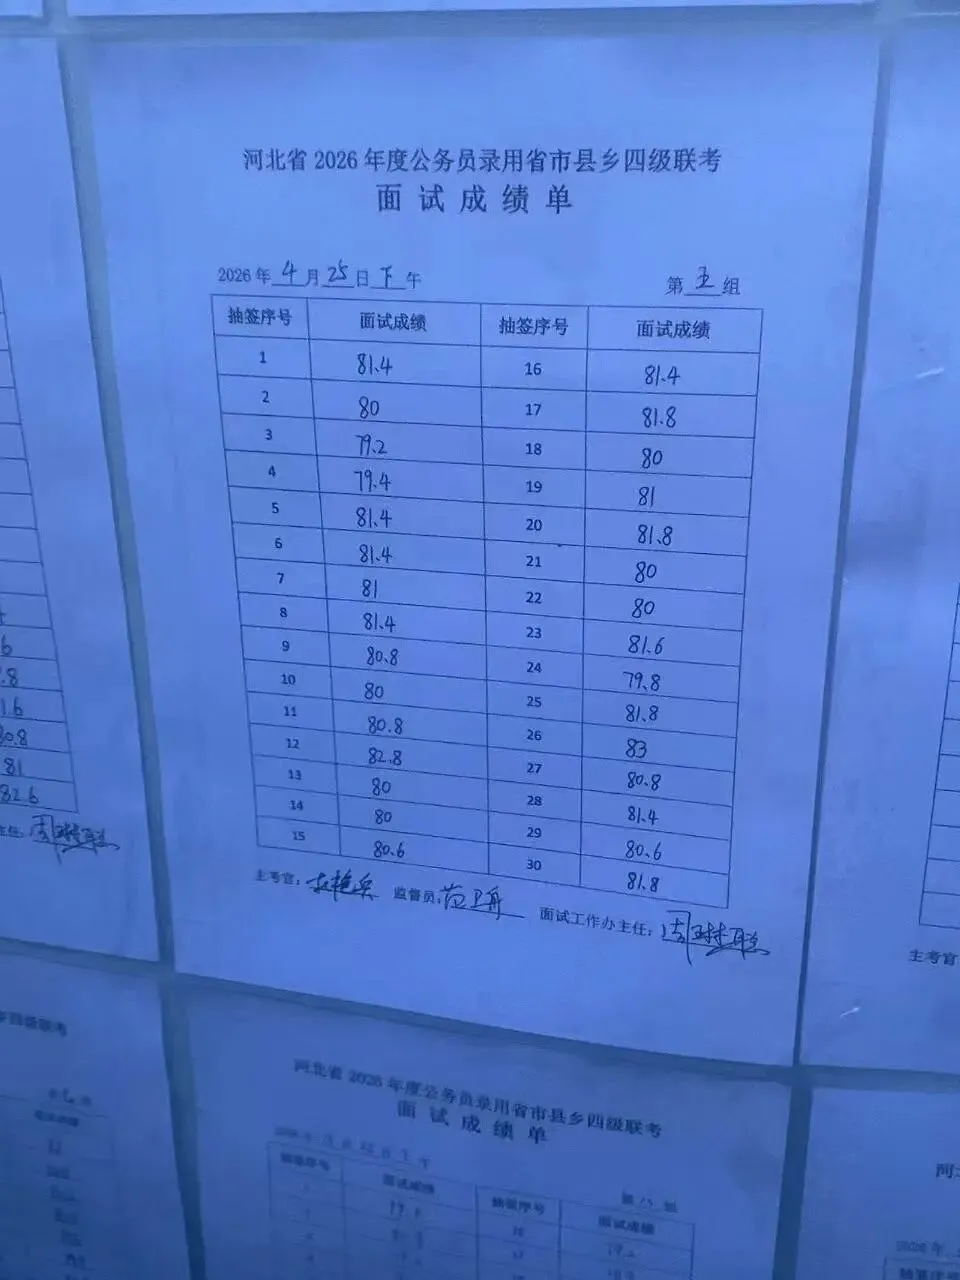 河北省2026年度公务员录用省市县乡四级联考
面试成绩单
2026年4月25日下午 第五组
抽签序号 面试成绩 抽签序号 面试成绩
1 81.4 16 81.4
2 80 17 81.8
3 79.2 18 80
4 79.4 19 81
5 81.4 20 81.8
6 81.4 21 80
7 81 22 80
8 81.4 23 81.6
9 80.8 24 79.8
10 80 25 81.8
11 80.8 26 83
12 82.8 27 80.8
13 80 28 81.4
14 80 29 80.6
15 80.6 30 81.8
主考官: 监督员: 面试工作办主任:
6
.8
1.6
80.8
81
82.6
主任:
主考官
四级联考
河北省2026年度公务员录用省市县乡四级联考
面试成绩单
抽签序号 面试成绩 抽签序号 面试成绩
2026年
抽签序